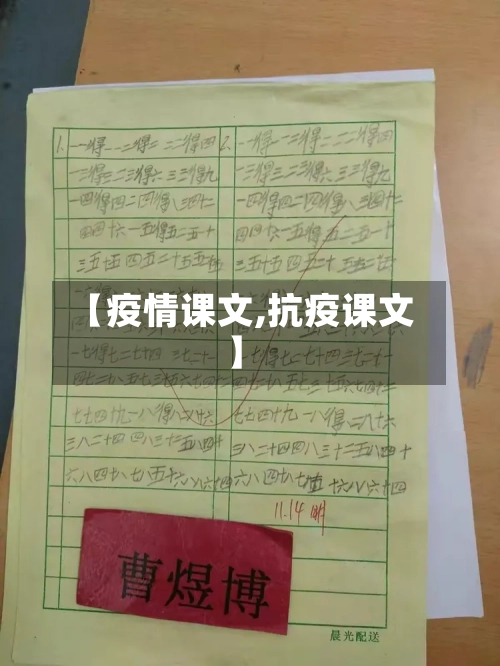 1. 一一得一一二得二 二二得四
一三得三二三得六三三得九
一四得四二四得八三四十二
四四十六一五得五二五一十
三五十五四五二十五五
一七得七二七十四 三七二十一
七七四十九一八得八二八十六
三八二十四四八三十二五八四十
六八四十八七八五十六八八六十四
2. 一一得一一二得二二二得四
一三得三二三得六三三得九
一四得四二四得八三四十二
四四十六一五得五二五一十
三五十五四五二十
一七得七二七十四三七二十一
七七四十九一八得八二八十六
三八二十四四八三十二五八四十
六八四十八七八五十六八八六十四
【疫情课文,抗疫课文
】
11.14
曹煜博
晨光配送